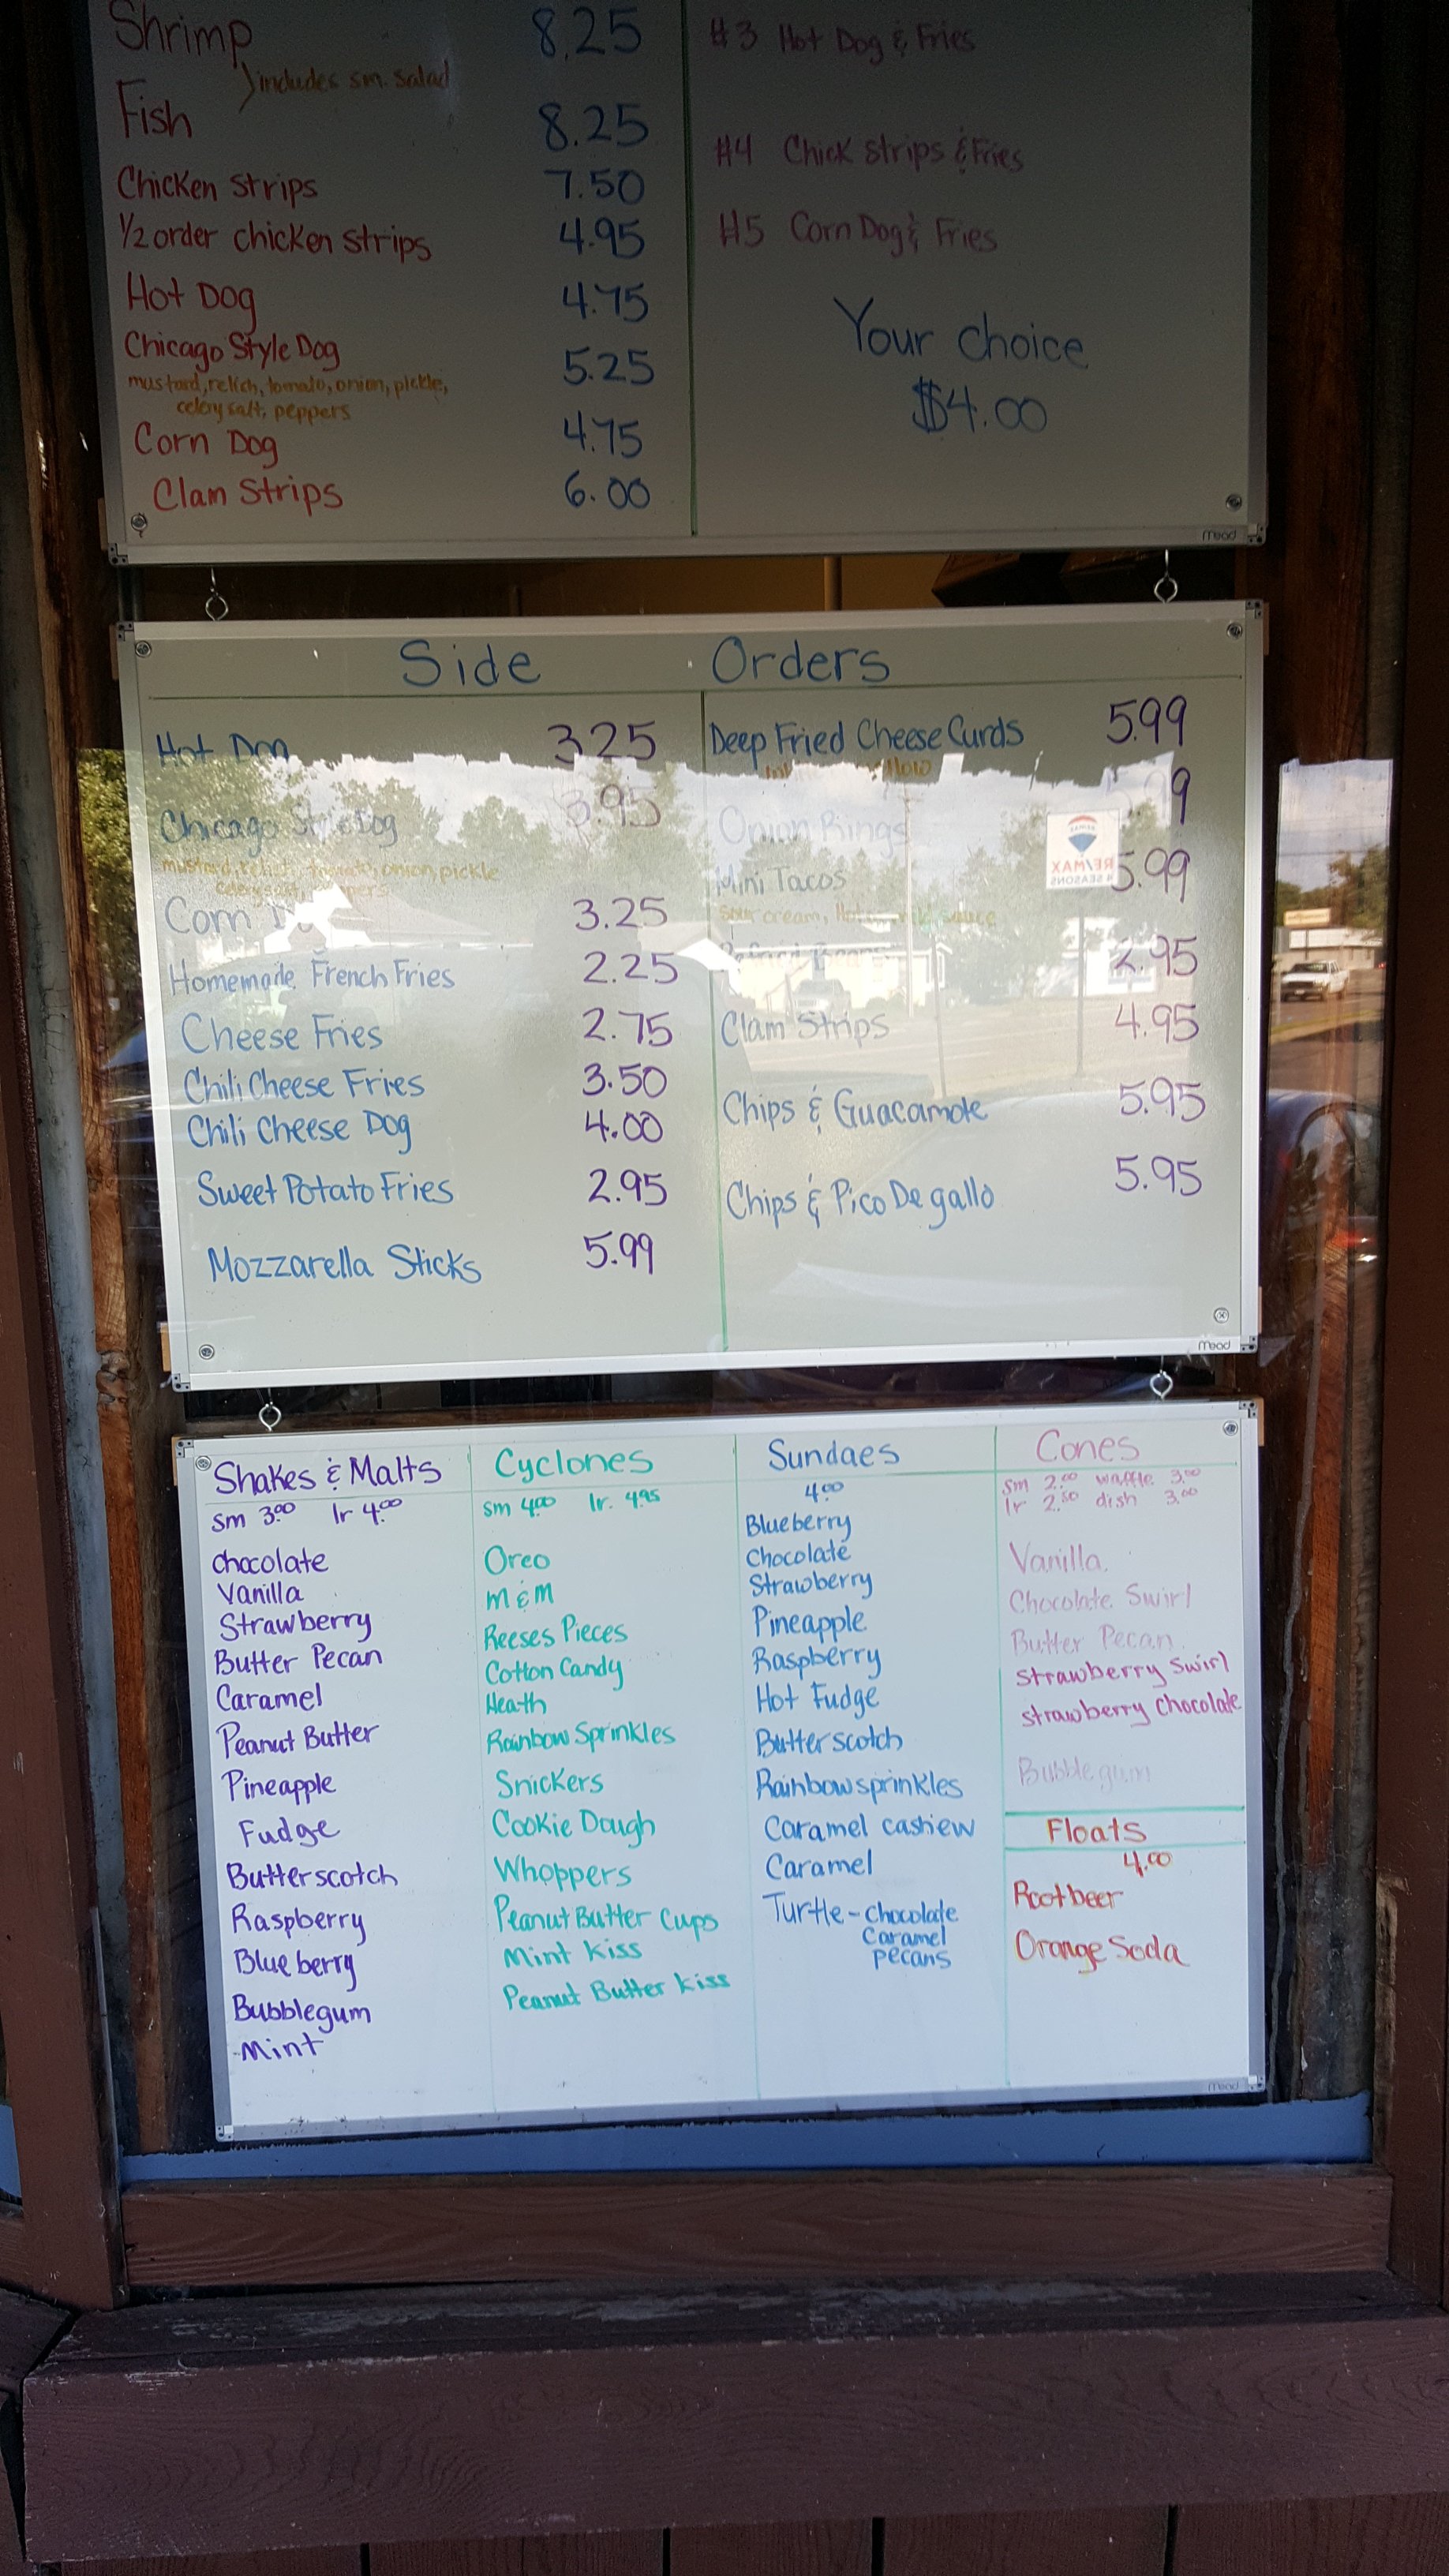 Shrimp 8.25
) includes sm. salad
Fish 8.25
Chicken Strips 7.50
1/2 order chicken strips 4.95
Hot Dog 4.75
Chicago Style Dog 5.25
mustard, relish, tomato, onion, pickle,
celery salt, peppers
Corn Dog 4.75
Clam Strips 6.00
#3 Hot Dog & Fries
#4 Chick strips & Fries
#5 Corn Dog & Fries
Your choice
$4.00
mead
Side Orders
Hot Dog 3.25
Chicago Style Dog 3.95
mustard, relish, tomato, onion, pickle
celery salt, peppers
Corn 3.25
Homemade French Fries 2.25
Cheese Fries 2.75
Chili Cheese Fries 3.50
Chili Cheese Dog 4.00
Sweet Potato Fries 2.95
Mozzarella Sticks 5.99
Deep Fried Cheese Curds 5.99
Onion Rings
Mini Tacos 5.99
sour cream, sauce
2.95
Clam Strips 4.95
Chips & Guacamole 5.95
Chips & Pico De gallo 5.95
RE/MAX
4 SEASONS
mead
Shakes & Malts
sm 3.00 lr 4.00
chocolate
Vanilla
Strawberry
Butter Pecan
Caramel
Peanut Butter
Pineapple
Fudge
Butterscotch
Raspberry
Blueberry
Bubblegum
Mint
Cyclones
sm 4.00 lr. 4.95
Oreo
M & M
Reeses Pieces
Cotton Candy
Heath
Rainbow Sprinkles
Snickers
Cookie Dough
Whoppers
Peanut Butter Cups
Mint Kiss
Peanut Butter Kiss
Sundaes
4.00
Blueberry
Chocolate
Strawberry
Pineapple
Raspberry
Hot Fudge
Butterscotch
Rainbow sprinkles
Caramel cashew
Caramel
Turtle - chocolate
Caramel
pecans
Cones
sm 2.00 waffle 3.50
lr 2.50 dish 3.00
Vanilla
Chocolate Swirl
Butter Pecan
Strawberry Swirl
strawberry chocolate
Bubblegum
Floats
4.00
Rootbeer
Orange Soda
mead